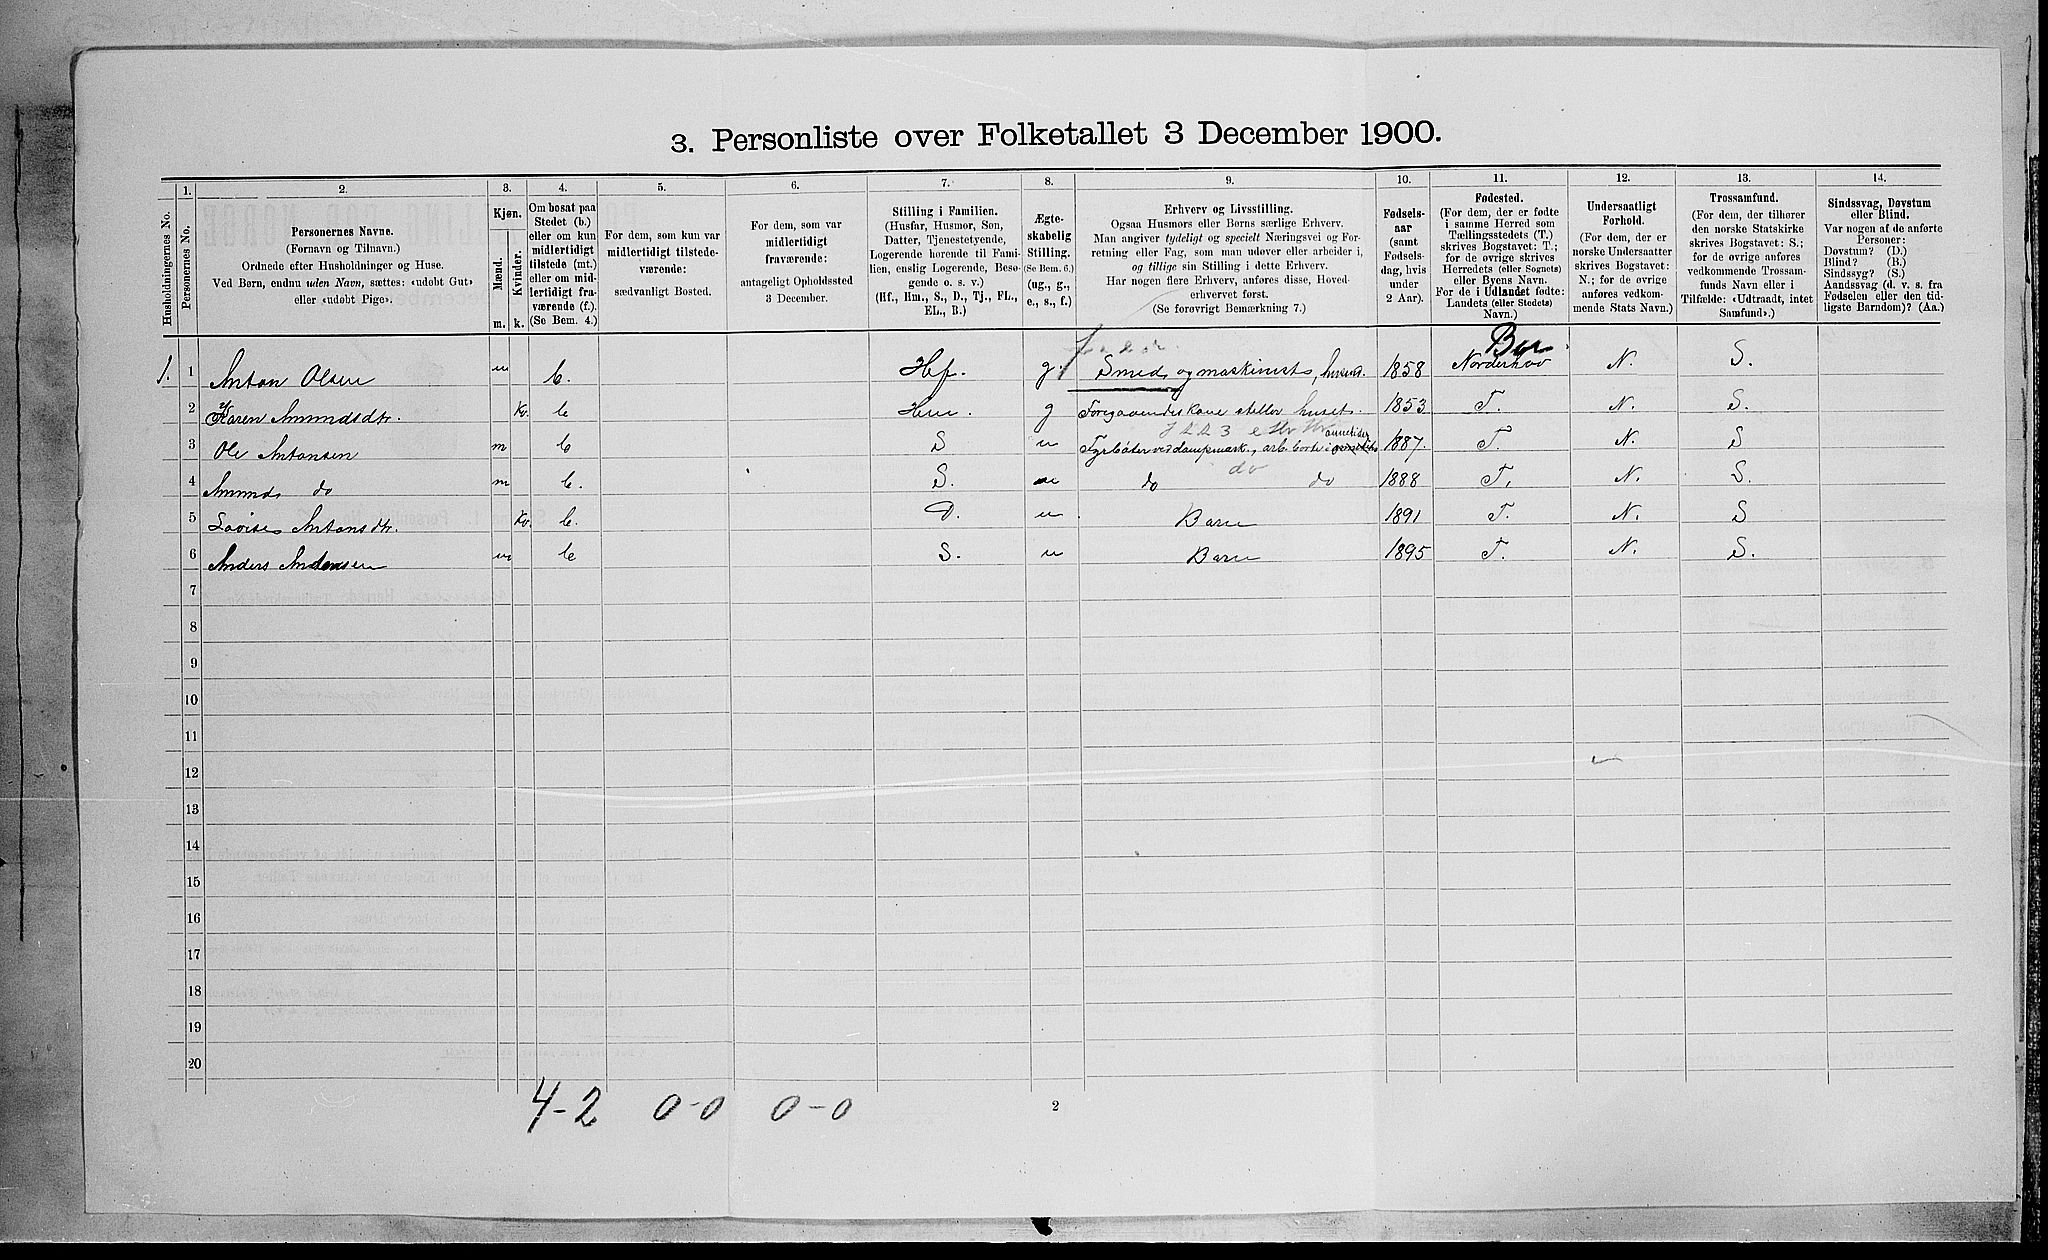 3. Personliste over Folketallet 3 December 1900.
Husholdningernes No.
1.
Personernes No.
2.
Personernes Navne.
(Fornavn og Tilnavn.)
Ordnede efter Husholdninger og Huse.
Ved Børn, endnu uden Navn, sættes: «udøbt Gut»
eller «udøbt Pige».
3.
Kjøn.
Mænd.
Kvinder.
m. k.
4.
Om bosat paa
Stedet (b.)
eller om kun
midlertidigt
tilstede (mt.)
eller om mid-
lertidigt fra-
værende (f.).
(Se Bem. 4.)
5.
For dem, som kun var
midlertidigt tilstede-
værende:
sædvanligt Bosted.
6.
For dem, som var
midlertidigt
fraværende:
antageligt Opholdssted
3 December.
7.
Stilling i Familien.
(Husfar, Husmor, Søn,
Datter, Tjenestetyende,
Logerende hørende til Fami-
lien, enslig Logerende, Besø-
gende o. s. v.)
(Hf., Hm., S., D., Tj., FL.,
EL., B.)
8.
Ægte-
skabelig
Stilling.
(Se Bem. 6.)
(ug., g.,
e., s., f.)
9.
Erhverv og Livsstilling.
Ogsaa Husmors eller Børns særlige Erhverv.
Man angiver tydeligt og specielt Næringsvei og For-
retning eller Fag, som man udøver eller arbeider i,
og tillige sin Stilling i dette Erhverv.
Har nogen flere Erhverv, anføres disse, Hoved-
erhvervet først.
(Se forøvrigt Bemærkning 7.)
10.
Fødsels-
aar
(samt
Fødsels-
dag, hvis
under
2 Aar).
11.
Fødested.
(For dem, der er fødte
i samme Herred som
Tællingsstedets (T.)
skrives Bogstavet: T.;
for de øvrige skrives
Herredets (eller Sognets)
eller Byens Navn.
For de i Udlandet fødte:
Landets (eller Stedets)
Navn.)
12.
Undersaatligt
Forhold.
(For dem, der er
norske Undersaatter
skrives Bogstavet:
N.; for de øvrige
anføres vedkom-
mende Stats Navn.)
13.
Trossamfund.
(For dem, der tilhører
den norske Statskirke
skrives Bogstavet: S.;
for de øvrige anføres
vedkommende Trossam-
funds Navn eller i
Tilfælde: «Udtraadt, intet
Samfund».)
14.
Sindssvag, Døvstum
eller Blind.
Var nogen af de anførte
Personer:
Døvstum? (D.)
Blind? (B.)
Sindssyg? (S.)
Aandssvag (d. v. s. fra
Fødselen eller den tid-
ligste Barndom)? (Aa.)
Bur.
1. 1 Anton Olsen m b. Hf. g. Smed og maskinist, 1858 Norderhov N. S.
2 Karen Amundsdtr. Kv. b Hm. g Foregaaendes kone steller huset. 1853 T. N. S.
3 Ole Antonsen m b S u Fyrbøter ved dampmask., arb. borte i 1887. T. N. S
4 Amund do m b. S. u do do do 1888 T. N. S.
5 Lovise Antonsdtr. Kv. b. D. u Barn 1891 T. N. S
6 Anders Antonsen m b S. u Barn 1895 T. N. S.
7
8
9
10
11
12
13
14
15
16
17
18
19
20
4-2 0-0 0-0
2